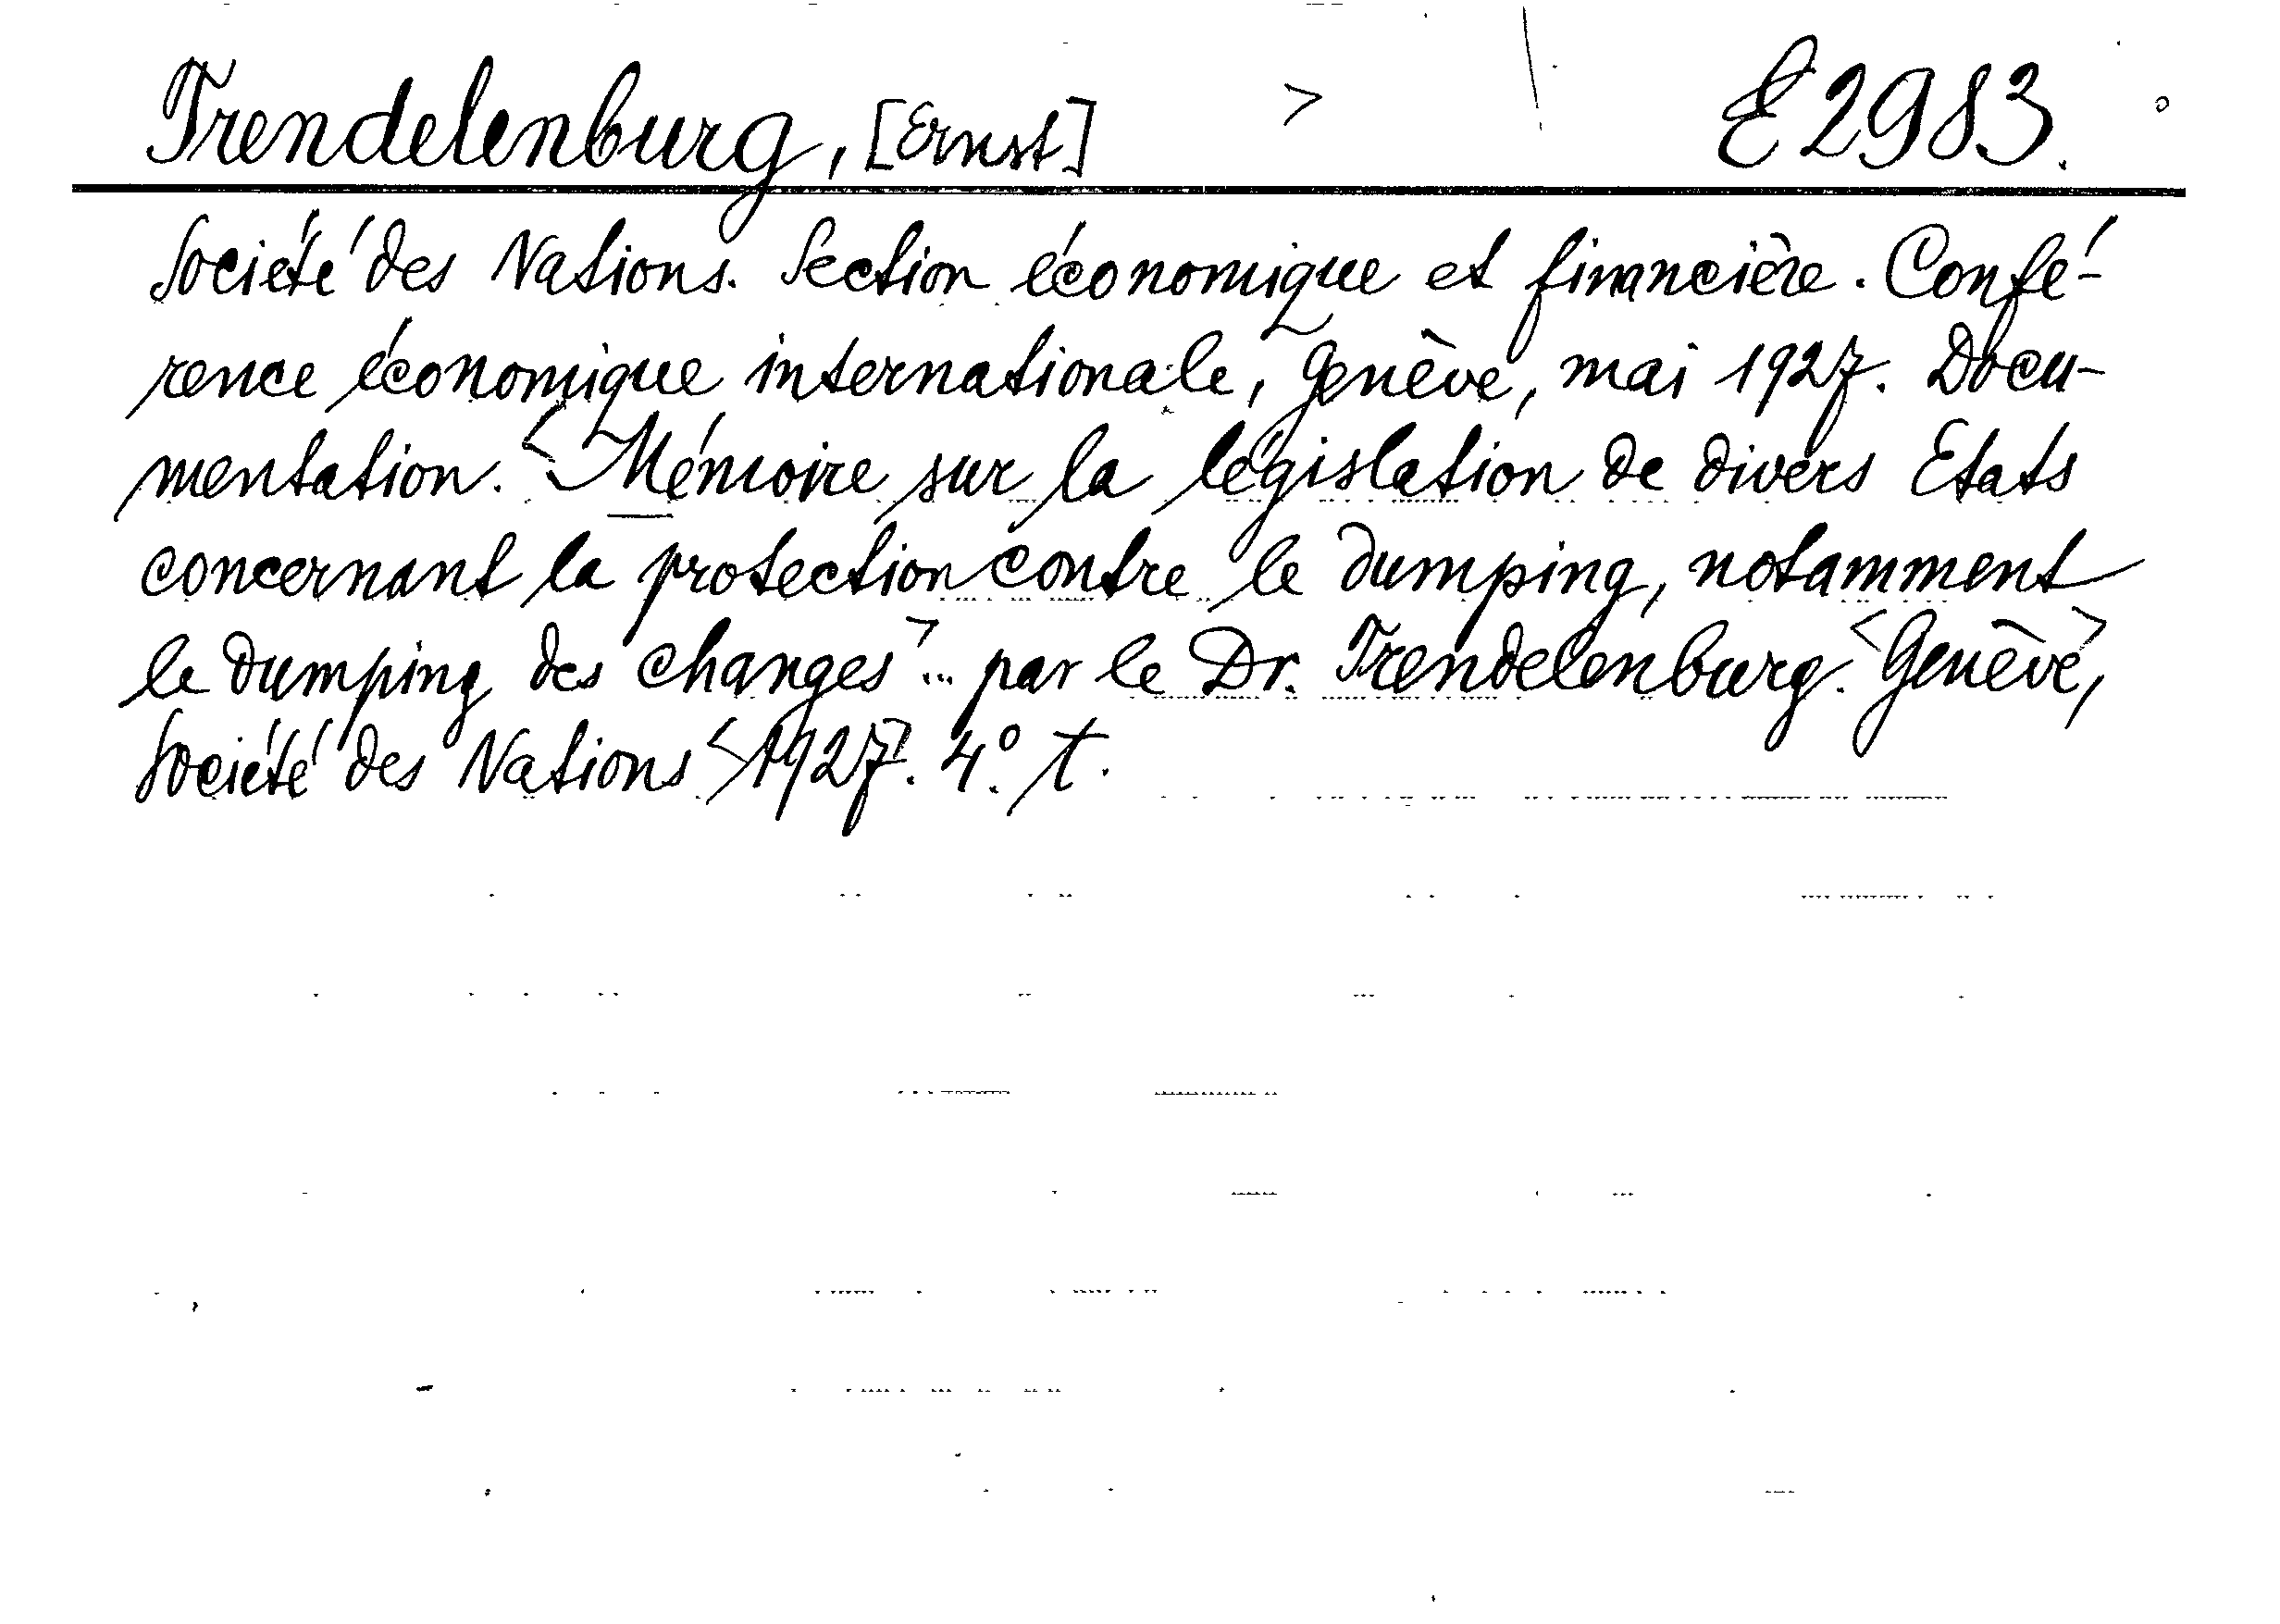 Trendelenburg, [Ernst] > E 2983.
Société des Nations. Section économique et financière. Confé-
rence économique internationale, Genève, mai 1927. Docu-
mentation. <Mémoire sur la législation de divers Etats
concernant la protection contre le dumping, notamment
le dumping des changes>... par le Dr. Trendelenburg. <Genève>,
Société des Nations <1927>. 4°. T.